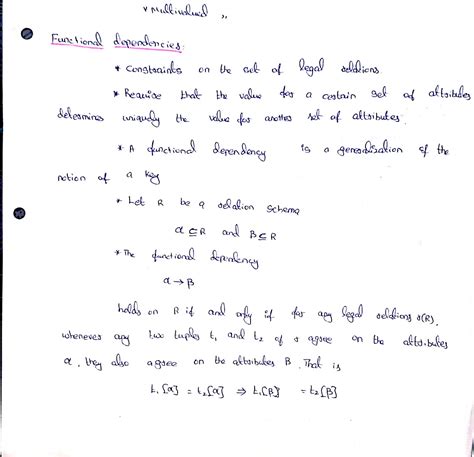 * Multivalued ,,
Functional dependencies:
* Constraints on the set of legal relations.
* Require that the value for a certain set of attributes
determines uniquely the value for another set of attributes.
* A functional dependency is a generalization of the
notion of a key
* Let R be a relation schema
α ⊆ R and β ⊆ R
* The functional dependency
α → β
holds on R if and only if for any legal relations r(R),
whenever any two tuples t₁ and t₂ of r agree on the attributes
α, they also agree on the attributes β. That is
t₁[α] = t₂[α] ⇒ t₁[β] = t₂[β]